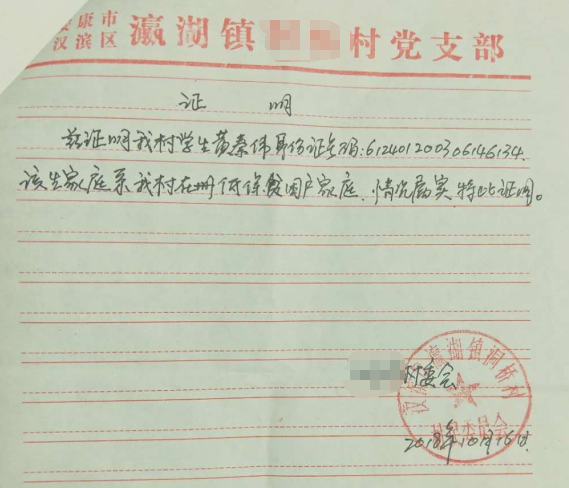 安康市
汉滨区 瀛湖镇 村党支部
证 明
兹证明我村学生黄秦伟身份证号码:612401200306146134.
该生家庭系我村在册低保贫困户家庭、情况属实,特此证明。
村委会
瀛湖镇洞桥村
村民委员会
2018年10月16日